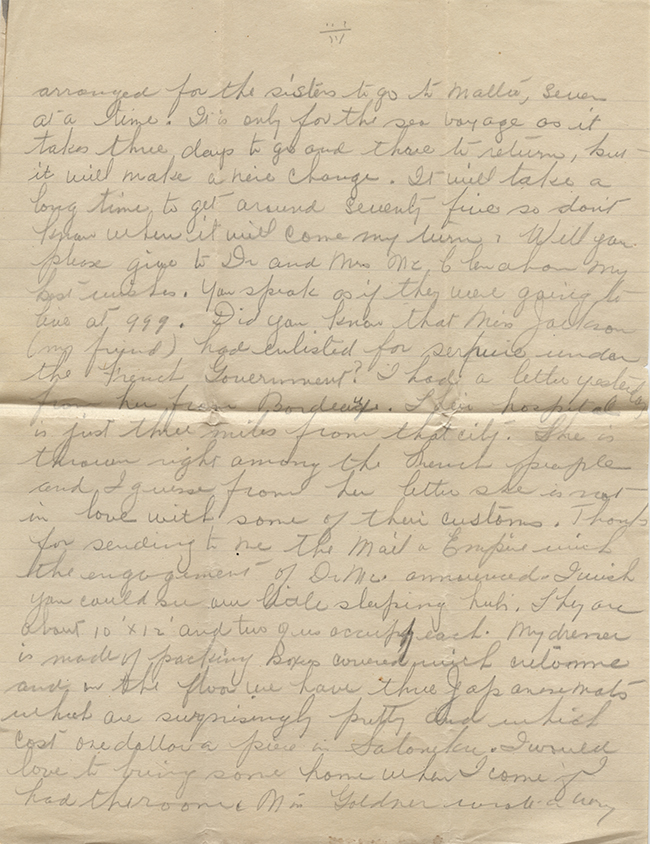 III
arranged for the sisters to go to Malta, seven
at a time. It is only for the sea voyage as it
takes three days to go and three to return, but
it will make a nice change. It will take a
long time to get around seventy five so don't
know when it will come my turn. Will you
please give to Dr and Mrs Mc my
best wishes. You speak as if they were going to
live at 999. Did you know that Miss Jackson
(my friend) had enlisted for service under
the French Government? I had a letter yesterday
from her from Bordeaux. Their hospital
is just three miles from that city. She is
thrown right among the French people
and I guess from her letter she is not
in love with some of their customs. Thanks
for sending to me the Mail & Empire with
the engagement of Dr Mc. announced. I wish
you could see our little sleeping huts. They are
about 10' x 12' and two of us occupy each. My dresser
is made of packing boxes covered with cretonne
and on the floor we have three Japanese mats
which are surprisingly pretty and which
cost one dollar a piece in Salonika. I would
love to bring some home when I come if I
had the room. Miss Goldner wrote a very